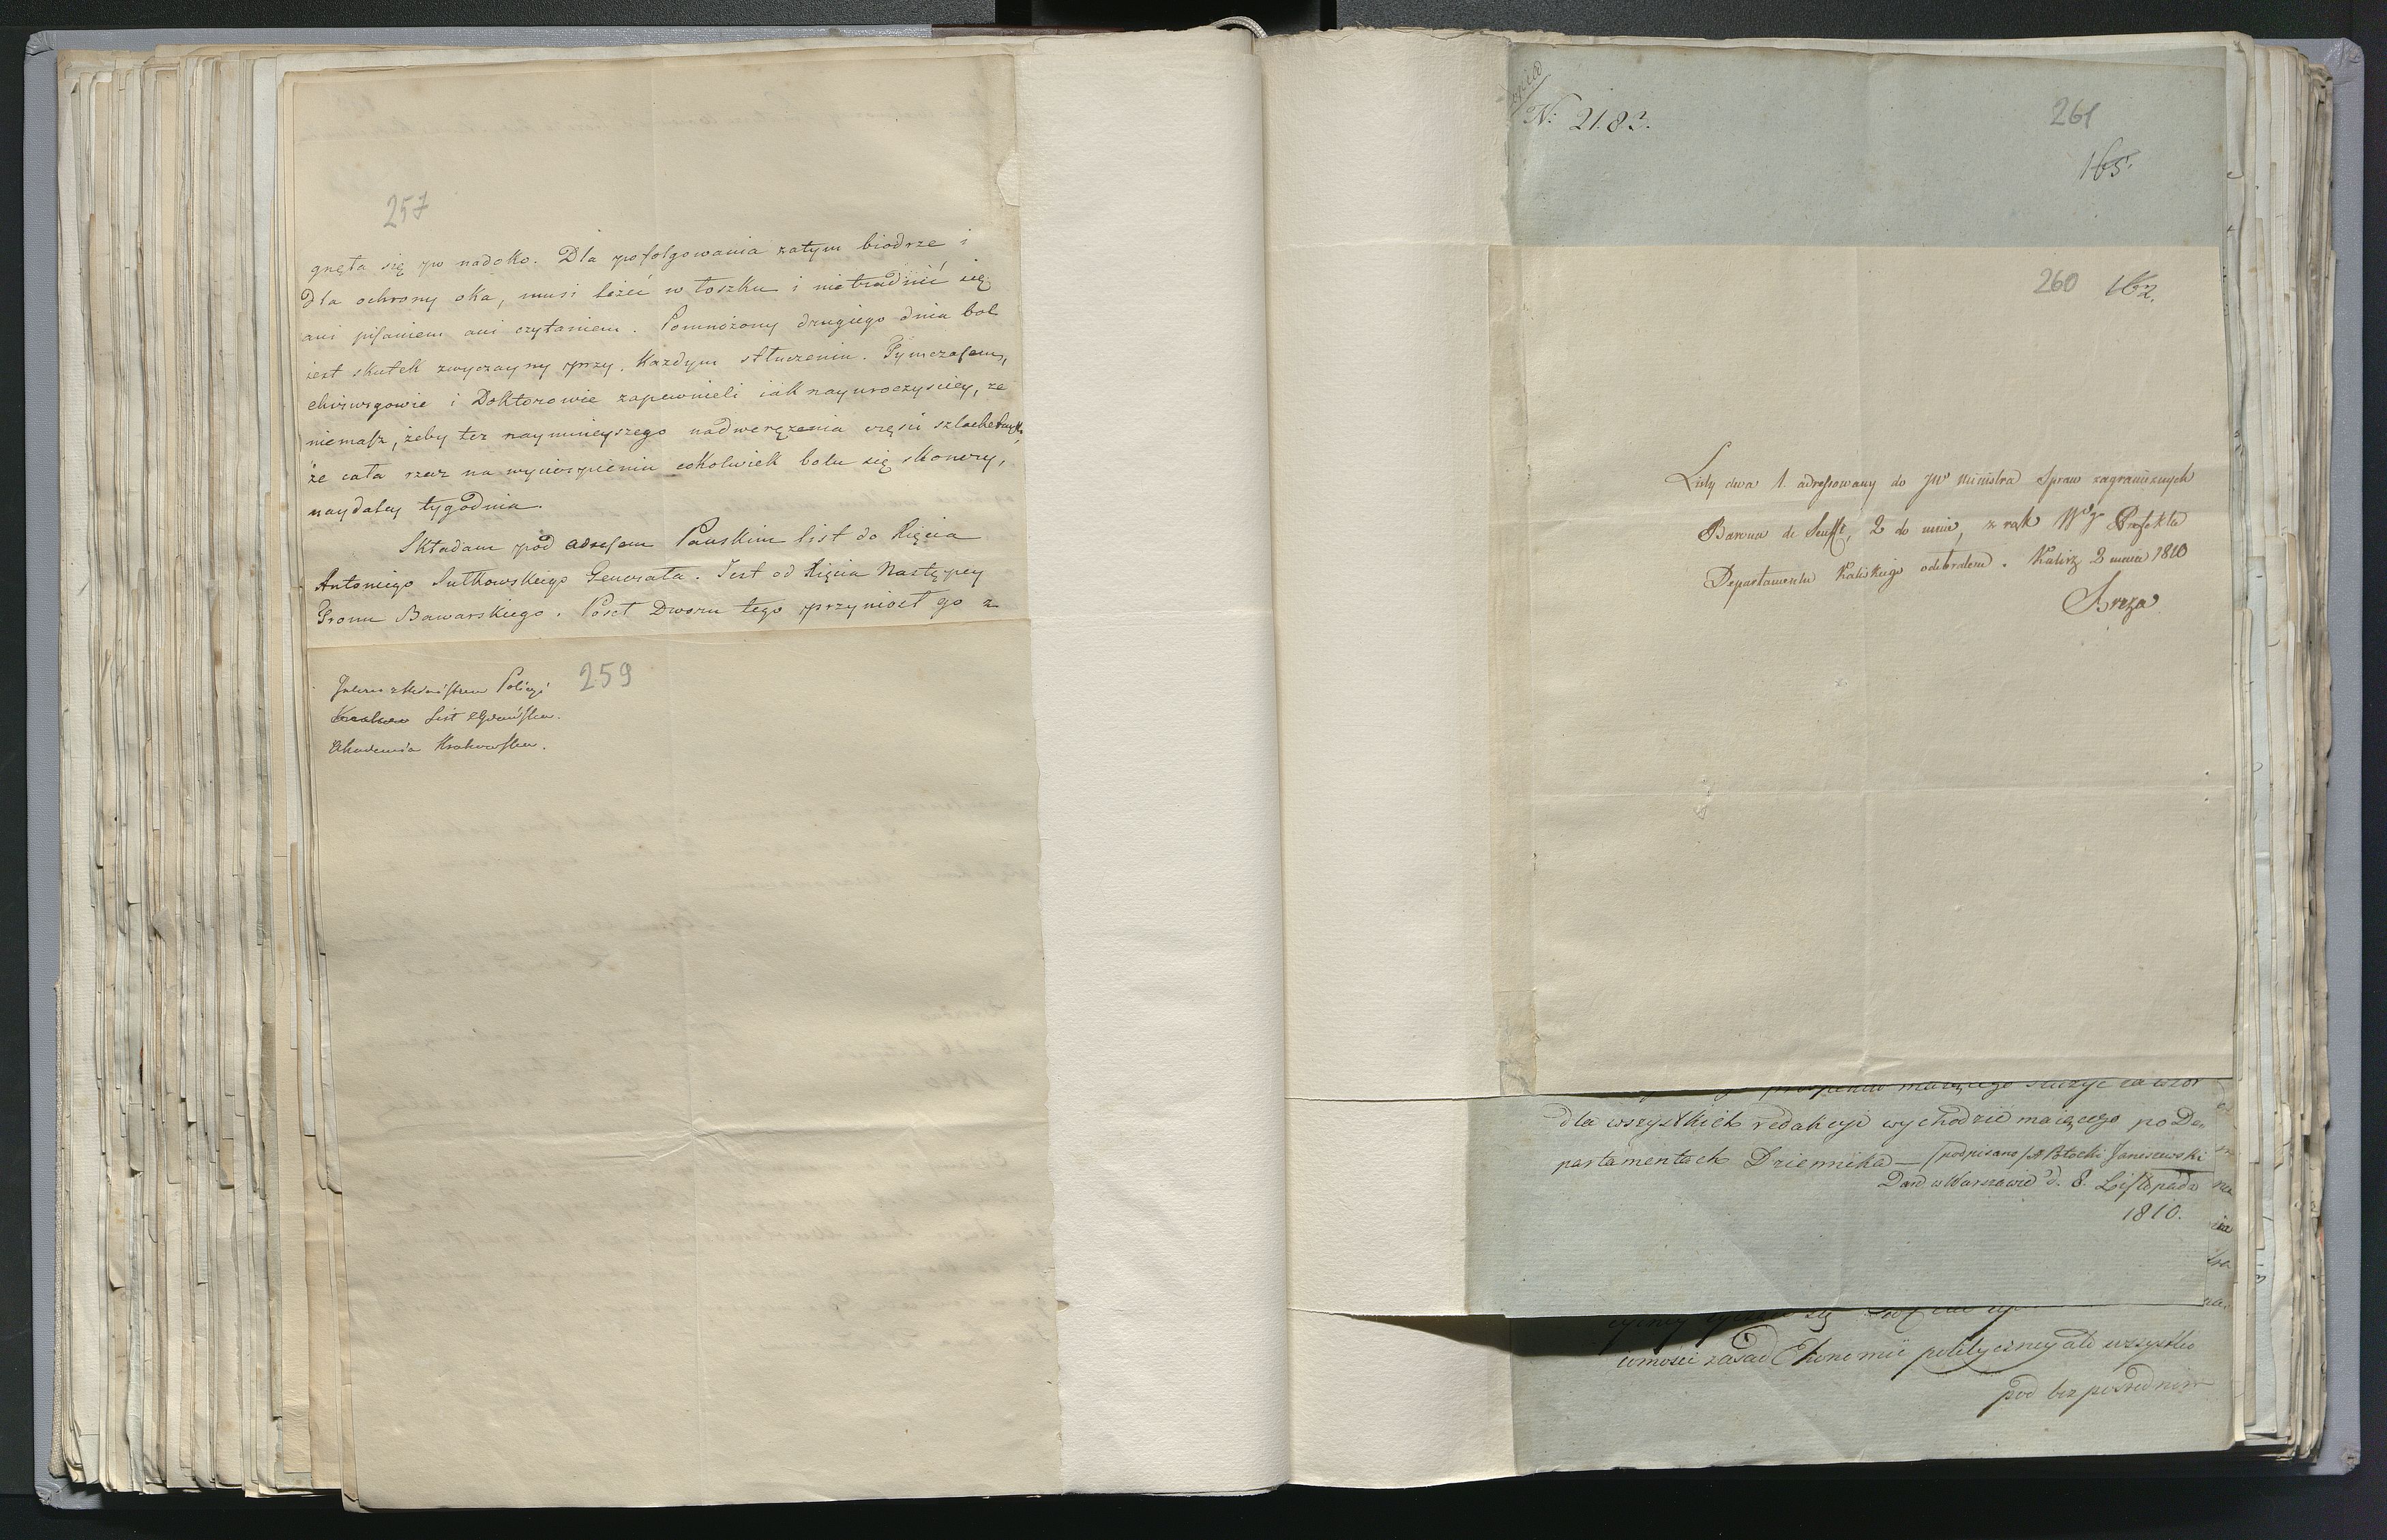 257
gnęła się po nadoko. Dla pofolgowania zatym biodrze i
dla ochrony oka, musi leżeć w łoszku i nietrudnić się
ani pisaniem ani czytaniem. Pomnożony drugiego dnia bol
iest skutek zwyczayny przy każdym stłuczeniu. Tymczasem,
chirurgowie i Doktorowie zapewnieli iak nayuroczyściey, że
niemasz, żeby też naymnieyszego nadwerężenia części szlachetnych,
że cała rzecz na wycierpieniu cokolwiek bolu się skończy,
naydaley tygodnia.
Składam pod adresem Pańskim list do Xięcia
Antoniego Sułkowskiego Generała. Jest od Xięcia Następcy
Tronu Bawarskiego. Poseł Dworu tego przyniosł go z
259
Policyi
List
Akademia Krakowska.
N: 2183.
261
165.
260 162.
Listy dwa 1. adressowany do JW Ministra Spraw zagranicznych
Barona de Senfft, 2 do mnie, z rąk Wgo Prefekta
Departamentu Kaliskiego odebrałem. Kalisz 2 maia 1810
Breza
maiącego służyć za wzor
dla wszystkich redakcyi wychodzić maiącego po De-
partamentach Dziennika — (podpisano) A Potocki Janiszewski
Dan w Warszawie d. 8. Listopada
1810.
zasad Ekonomii polityczney ale wszystko
pod bezpośrednim